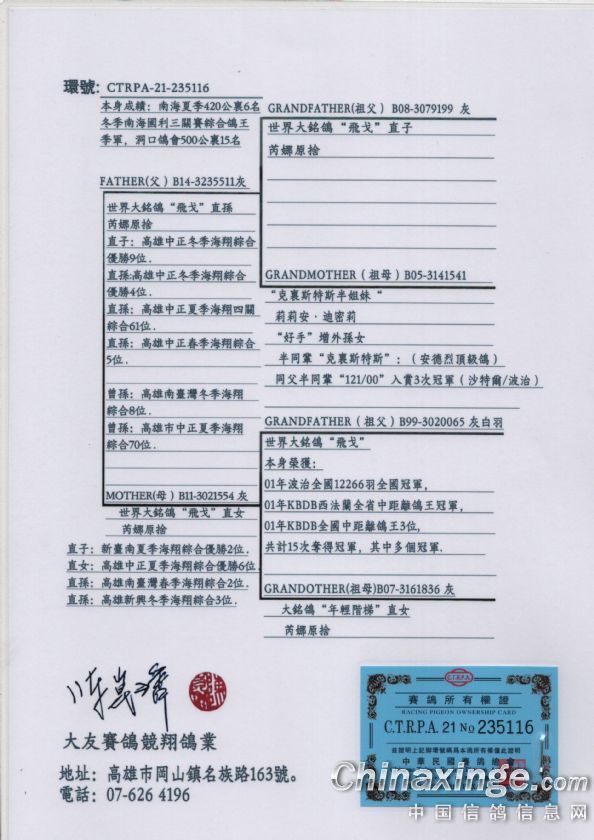 環號: CTRPA-21-235116
本身成績：南海夏季420公裏6名
冬季南海國利三關賽綜合鴿王
季軍，洞口鴿會500公裏15名
FATHER(父）B14-3235511灰
世界大銘鴿“飛戈”直孫
芮娜原捨
直子：高雄中正冬季海翔綜合
優勝9位.
直孫:高雄中正冬季海翔綜合
優勝4位.
直孫：高雄中正夏季海翔四關
綜合61位.
直孫：高雄中正春季海翔綜合
5位.
曾孫：高雄南臺灣冬季海翔
綜合8位.
曾孫：高雄市中正夏季海翔
綜合70位.
MOTHER(母）B11-3021554 灰
世界大銘鴿“飛戈”直女
芮娜原捨
直子：新臺南夏季海翔綜合優勝2位.
直女：高雄中正夏季海翔綜合優勝6位.
直孫：高雄南臺灣春季海翔綜合2位.
直孫：高雄新興冬季海翔綜合3位.
GRANDFATHER(祖父）B08-3079199 灰
世界大銘鴿“飛戈”直子
芮娜原捨
GRANDMOTHER（祖母）B05-3141541
“克裏斯特斯半姐妹“
莉莉安·迪密莉
“好手”增外孫女
半同輩“克裏斯特斯”：（安德烈頂級鴿）
同父半同輩“121/00”入賞3次冠軍（沙特爾/波治）
GRANDFATHER（祖父）B99-3020065 灰白羽
世界大銘鴿“飛戈”
本身榮獲：
01年波治全國12266羽全國冠軍，
01年KBDB西法蘭全省中距離鴿王冠軍，
01年KBDB全國中距離鴿王3位，
共計15次奪得冠軍，其中多個冠軍.
GRANDOTHER(祖母)B07-3161836 灰
大銘鴿“年輕階梯”直女
芮娜原捨
大友賽鴿競翔鴿業
地址：高雄市岡山鎮名族路163號。
電話：07-626 4196
C.T.R.P.A.
賽鴿所有權證
RACING PIGEON OWNERSHIP CARD
C.T.R.P.A. 21 No 235116
茲證明上記腳環號碼爲本鴿所有權僅此證明
中華民國賽鴿總
Chinaxinge.com
中国信鸽信息网